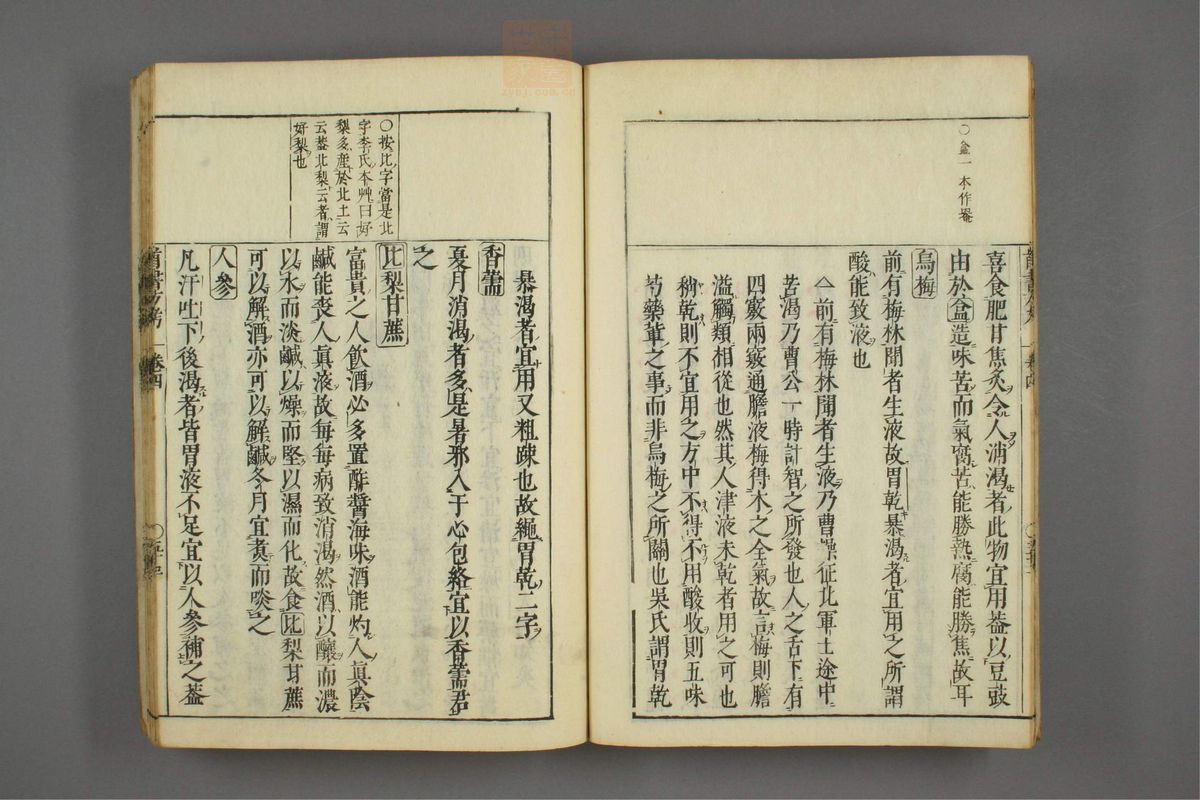 ○盦一本作罨
喜食肥甘焦炙令人消渴者此物宜用葢以豆豉
由於盦造味苦而氣腐苦能勝熱腐能勝焦故耳
烏梅
前有梅林聞者生液故胃乾暴渴者宜用之所謂
酸能致液也
前有梅林聞者生液乃曹操征北軍士途中
苦渴乃曹公一時計智之所發也人之舌下有
四竅兩竅通膽液梅得木之全氣故言梅則膽
溢觸類相從也然其人津液未乾者用之可也
稍乾則不宜用之方中不得不用酸收則五味
芍藥輩之事而非烏梅之所關也吳氏謂胃乾
○按比字當是北
字李氏本艸曰好
梨多產於北土云
云葢北梨云者謂
好梨也
暴渴者宜用又粗疎也故繩胃乾二字
香薷
夏月消渴者多是暑邪入于心包絡宜以香薷君
之
比梨甘蔗
富貴之人飲酒必多置酢醬海味酒能灼人真陰
鹹能喪人真液故每每病致消渴然酒以釀而濃
以水而淡鹹以燥而堅以濕而化故食比梨甘蔗
可以解酒亦可以解鹹冬月宜煑而啖之
人參
凡汗吐下後渴者皆胃液不足宜以人參補之葢
卷四